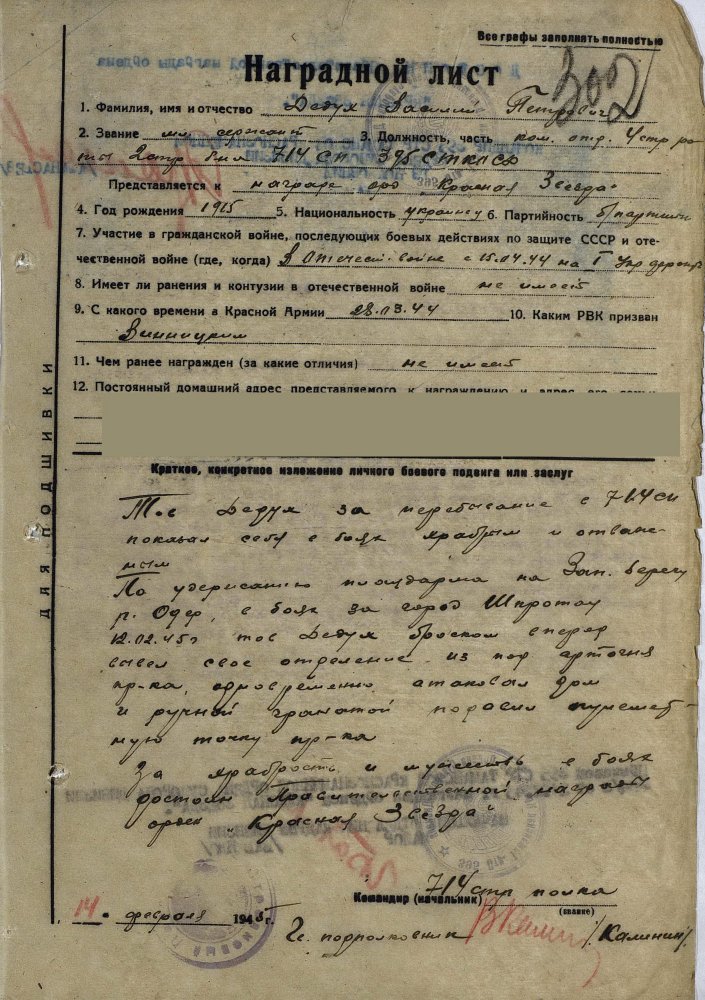 Все графы заполнять полностью
302
Наградной лист
1. Фамилия, имя и отчество Дедух Василий Петрович
2. Звание мл. сержант 3. Должность, часть ком. отд. 4 стр. ро-
ты 2 стр. б-на 714 СП 395 СТКПСД
Представляется к награде орд. "Красная Звезда"
4. Год рождения 1915 5. Национальность украинец 6. Партийность б/партийн
7. Участие в гражданской войне, последующих боевых действиях по защите СССР и оте-
чественной войне (где, когда) В Отечест. войне с 15.04.44 на I Укр фронте
8. Имеет ли ранения и контузии в отечественной войне не имеет
9. С какого времени в Красной Армии 28.03.44 10. Каким РВК призван
Винницким
11. Чем ранее награжден (за какие отличия) не имеет
12. Постоянный домашний адрес представляемого к награждению и адрес его семьи
ДЛЯ ПОДШИВКИ
Краткое, конкретное изложение личного боевого подвига или заслуг
Тов Дедух за пребывание в 714 СП
показал себя в боях храбрым и отваж-
ным
По удержанию плацдарма на Зап. берегу
р. Одер, в боях за город Шпротау
12.02.45г тов Дедух броском вперед
вывел свое отделение из под артогня
пр-ка, одновременно атаковал дом
и ручной гранатой подавил пулемет-
ную точку пр-ка
За храбрость и мужество в боях
достоин Правительственной награды
орден "Красная Звезда"
Командир (начальник) 714 стр полка
(звание)
14 февраля 1945 г.
Гв. подполковник /Калинин/